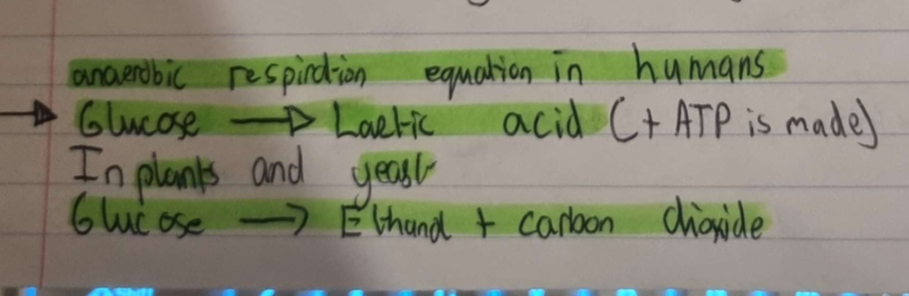 anaerobic respiration equation in humans
→ Glucose → Lactic acid (+ ATP is made)
In plants and yeast
Glucose → Ethanol + carbon dioxide